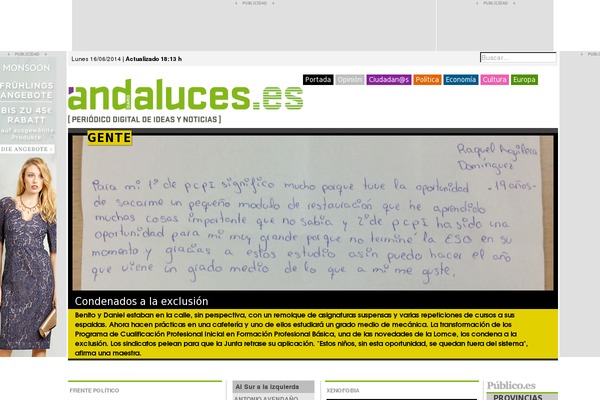 PUBLICIDAD
PUBLICIDAD
PUBLICIDAD
PUBLICIDAD
Lunes 16/06/2014 | Actualizado 18:13 h
Buscar...
Portada Opinión Ciudadan@s Política Economía Cultura Europa
andaluces.es
[ PERIÓDICO DIGITAL DE IDEAS Y NOTICIAS ]
MONSOON
FRÜHLINGS
ANGEBOTE
BIS ZU 45€
RABATT
auf ausgewählte
Produkte
DIE ANGEBOTE ›
GENTE
Raquel Aguilera
Domínguez
- 19 años -
Para mi 1º de pcpi significo mucho porque tuve la oportunidad
de sacarme un pequeño modulo de restauración que he aprendido
muchas cosas importante que no sabia y 2º de pcpi ha sido una
oportunidad para mi muy grande porque no termine la ESO en su
momento y gracias a estos estudio asin puedo hacer el año
que viene un grado medio de lo que a mi me guste.
Condenados a la exclusión
Benito y Daniel estaban en la calle, sin perspectiva, con un remolque de asignaturas suspensas y varias repeticiones de cursos a sus
espaldas. Ahora hacen prácticas en una cafetería y uno de ellos estudiará un grado medio de mecánica. La transformación de los
Programa de Cualificación Profesional Inicial en Formación Profesional Básica, una de las novedades de la Lomce, los condena a la
exclusión. Los sindicatos pelean para que la Junta retrase su aplicación. "Estos niños, sin esta oportunidad, se quedan fuera del sistema",
afirma una maestra.
FRENTE POLÍTICO
Al Sur a la izquierda
ANTONIO AVENDAÑO
XENOFOBIA
Público.es
PROVINCIAS